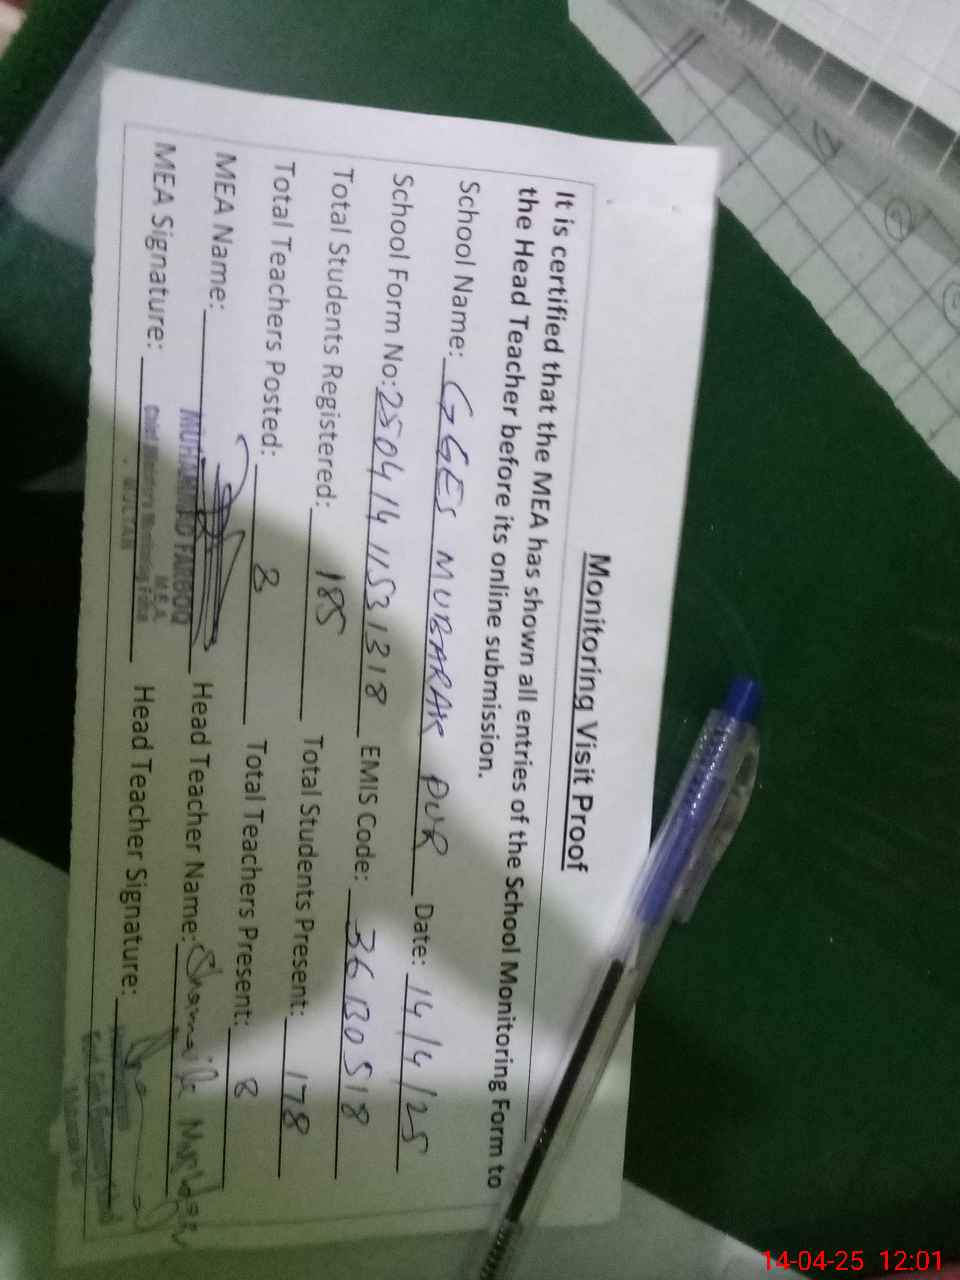 Monitoring Visit Proof
It is certified that the MEA has shown all entries of the School Monitoring Form to
the Head Teacher before its online submission.
School Name: GGES MUBARAK PUR Date: 14/4/25
School Form No: 25041411531318 EMIS Code: 36130518
Total Students Registered: 185 Total Students Present: 178
Total Teachers Posted: 8 Total Teachers Present: 8
MEA Name: MUHAMMAD FAROOQ Head Teacher Name: Shamaila
M.E.A
MEA Signature: Chief Monitoring Force Head Teacher Signature:
MULTAN
14-04-25 12:01